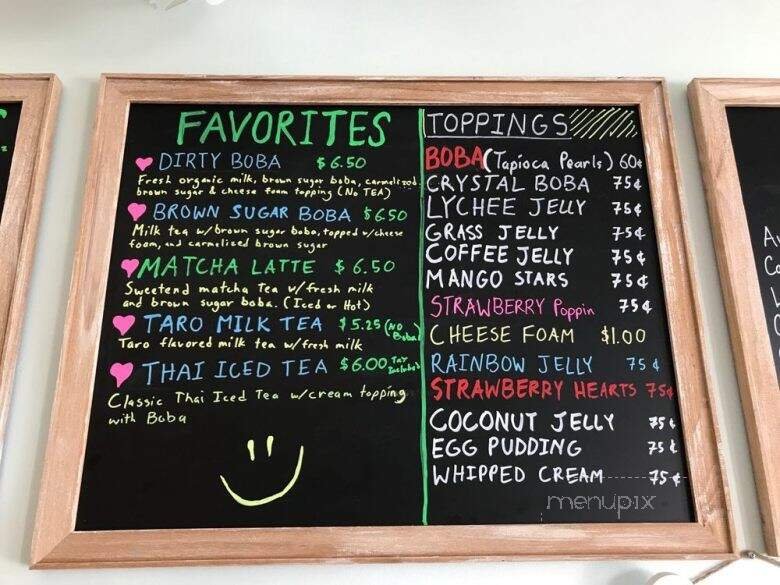 FAVORITES
DIRTY BOBA $6.50
Fresh organic milk, brown sugar boba, carmelized
brown sugar & cheese foam topping (NO TEA)
BROWN SUGAR BOBA $6.50
Milk tea w/brown sugar boba, topped w/cheese
foam, and carmelized brown sugar
MATCHA LATTE $6.50
Sweetend matcha Tea w/fresh milk
and brown sugar boba. (Iced or Hot)
TARO MILK TEA $5.25 (NO Boba)
Taro flavored milk tea w/fresh milk
THAI ICED TEA $6.00 Tax Included
Classic Thai Iced Tea w/cream topping
with Boba
TOPPINGS
BOBA (Tapioca Pearls) 60¢
CRYSTAL BOBA 75¢
LYCHEE JELLY 75¢
GRASS JELLY 75¢
COFFEE JELLY 75¢
MANGO STARS 75¢
STRAWBERRY Poppin 75¢
CHEESE FOAM $1.00
RAINBOW JELLY 75¢
STRAWBERRY HEARTS 75¢
COCONUT JELLY 75¢
EGG PUDDING 75¢
WHIPPED CREAM 75¢
menupix